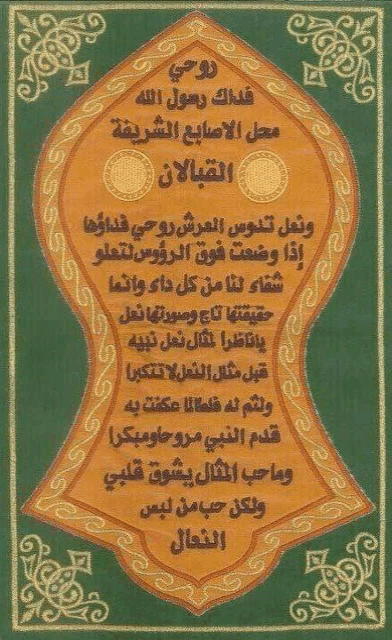 روحي
فداك رسول الله
محل الاصابع الشريفة
القبالان
ونعل تدوس العرش روحي فداؤها
إذا وضعت فوق الرؤوس لتعلو
شفاء لنا من كل داء وانما
حقيقتها تاج وصورتها نعل
ياناظراً لمثال نعل نبيه
قبل مثال النعل لا تتكبرا
ولثم له فلطالما عكفت به
قدم النبي مروحاومبكرا
وماحب المثال يشوق قلبي
ولكن حب من لبس
النعال